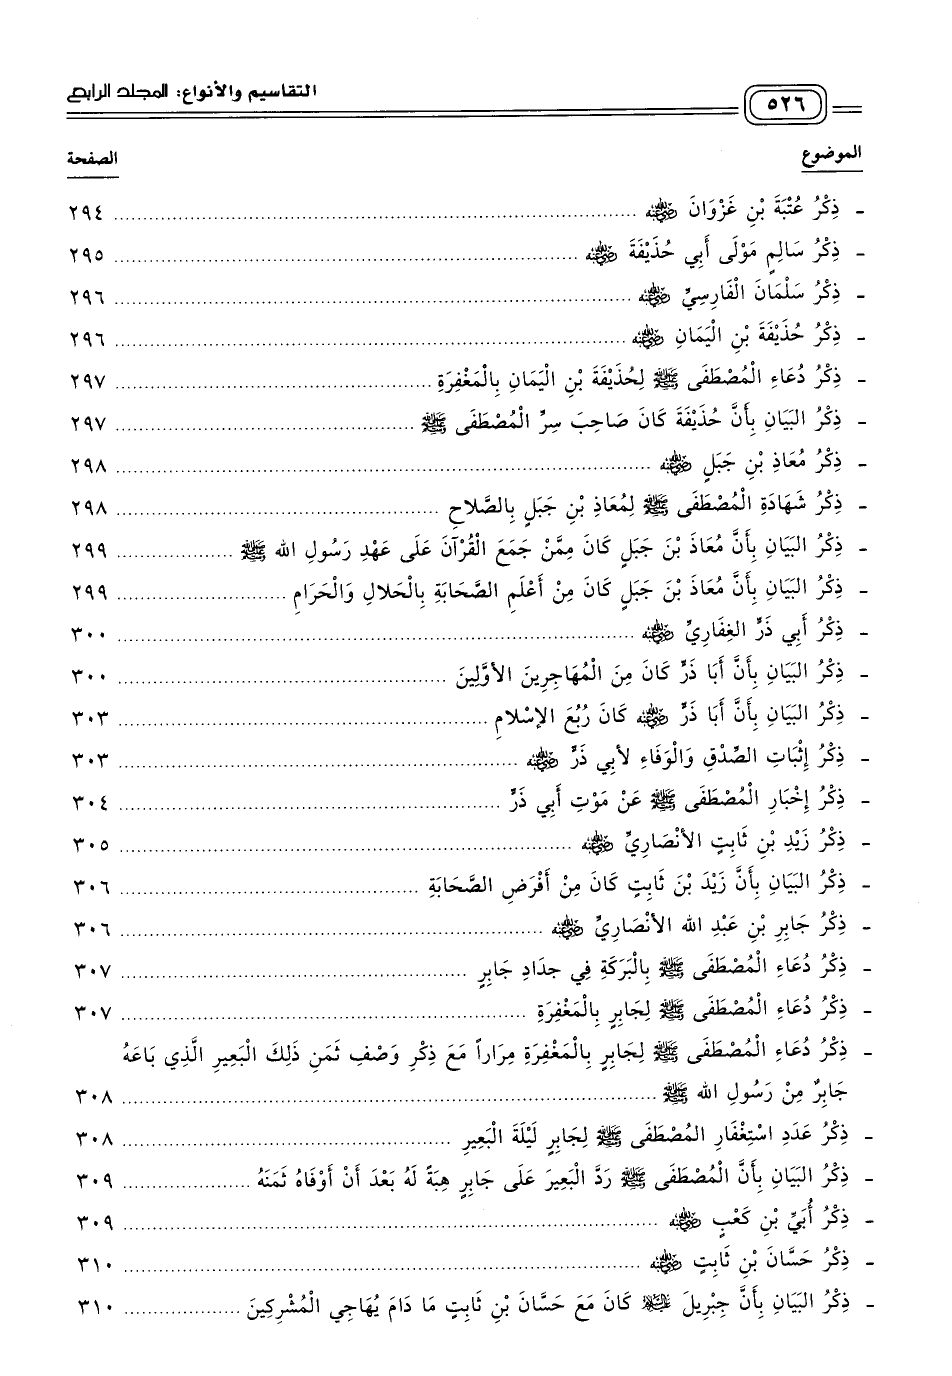 ٥٢٦ التقاسيم والأنواع: المجلد الرابع
الموضوع الصفحة
- ذِكْرُ عُتْبَةَ بْنِ غَزْوَانَ ﵁ ........ ٢٩٤
- ذِكْرُ سَالِمٍ مَوْلَى أَبِي حُذَيْفَةَ ﵁ ........ ٢٩٥
- ذِكْرُ سَلْمَانَ الْفَارِسِيِّ ﵁ ........ ٢٩٦
- ذِكْرُ حُذَيْفَةَ بْنِ الْيَمَانِ ﵁ ........ ٢٩٦
- ذِكْرُ دُعَاءِ الْمُصْطَفَى ﷺ لِحُذَيْفَةَ بْنِ الْيَمَانِ بِالْمَغْفِرَةِ ........ ٢٩٧
- ذِكْرُ البَيَانِ بِأَنَّ حُذَيْفَةَ كَانَ صَاحِبَ سِرِّ الْمُصْطَفَى ﷺ ........ ٢٩٧
- ذِكْرُ مُعَاذِ بْنِ جَبَلٍ ﵁ ........ ٢٩٨
- ذِكْرُ شَهَادَةِ الْمُصْطَفَى ﷺ لِمُعَاذِ بْنِ جَبَلٍ بِالصَّلَاحِ ........ ٢٩٨
- ذِكْرُ البَيَانِ بِأَنَّ مُعَاذَ بْنَ جَبَلٍ كَانَ مِمَّنْ جَمَعَ الْقُرْآنَ عَلَى عَهْدِ رَسُولِ الله ﷺ ........ ٢٩٩
- ذِكْرُ البَيَانِ بِأَنَّ مُعَاذَ بْنَ جَبَلٍ كَانَ مِنْ أَعْلَمِ الصَّحَابَةِ بِالْحَلالِ وَالْحَرَامِ ........ ٢٩٩
- ذِكْرُ أَبِي ذَرٍّ الغِفَارِيِّ ﵁ ........ ٣٠٠
- ذِكْرُ البَيَانِ بِأَنَّ أَبَا ذَرٍّ كَانَ مِنَ الْمُهَاجِرِينَ الأوَّلِينَ ........ ٣٠٠
- ذِكْرُ البَيَانِ بِأَنَّ أَبَا ذَرٍّ ﵁ كَانَ رُبُعَ الإسْلامِ ........ ٣٠٣
- ذِكْرُ إِثْبَاتِ الصِّدْقِ وَالْوَفَاءِ لأبِي ذَرٍّ ﵁ ........ ٣٠٣
- ذِكْرُ إِخْبَارِ الْمُصْطَفَى ﷺ عَنْ مَوْتِ أَبِي ذَرٍّ ........ ٣٠٤
- ذِكْرُ زَيْدِ بْنِ ثَابِتٍ الأنْصَارِيِّ ﵁ ........ ٣٠٥
- ذِكْرُ البَيَانِ بِأَنَّ زَيْدَ بْنَ ثَابِتٍ كَانَ مِنْ أَفْرَضِ الصَّحَابَةِ ........ ٣٠٦
- ذِكْرُ جَابِرِ بْنِ عَبْدِ الله الأنْصَارِيِّ ﵁ ........ ٣٠٦
- ذِكْرُ دُعَاءِ الْمُصْطَفَى ﷺ بِالْبَرَكَةِ فِي جدَادِ جَابِرٍ ........ ٣٠٧
- ذِكْرُ دُعَاءِ الْمُصْطَفَى ﷺ لِجَابِرٍ بِالْمَغْفِرَةِ ........ ٣٠٧
- ذِكْرُ دُعَاءِ الْمُصْطَفَى ﷺ لِجَابِرٍ بِالْمَغْفِرَةِ مِرَاراً مَعَ ذِكْرِ وَصْفِ ثَمَنِ ذَلِكَ الْبَعِيرِ الَّذِي بَاعَهُ
جَابِرٌ مِنْ رَسُولِ الله ﷺ ........ ٣٠٨
- ذِكْرُ عَدَدِ اسْتِغْفَارِ المُصْطَفَى ﷺ لِجَابِرٍ لَيْلَةَ الْبَعِيرِ ........ ٣٠٨
- ذِكْرُ البَيَانِ بِأَنَّ الْمُصْطَفَى ﷺ رَدَّ الْبَعِيرَ عَلَى جَابِرٍ هِبَةً لَهُ بَعْدَ أَنْ أَوْفَاهُ ثَمَنَهُ ........ ٣٠٩
- ذِكْرُ أُبَيِّ بْنِ كَعْبٍ ﵁ ........ ٣٠٩
- ذِكْرُ حَسَّانَ بْنِ ثَابِتٍ ﵁ ........ ٣١٠
- ذِكْرُ البَيَانِ بِأَنَّ جِبْرِيلَ ﵇ كَانَ مَعَ حَسَّانَ بْنِ ثَابِتٍ مَا دَامَ يُهَاجِي الْمُشْرِكِينَ ........ ٣١٠